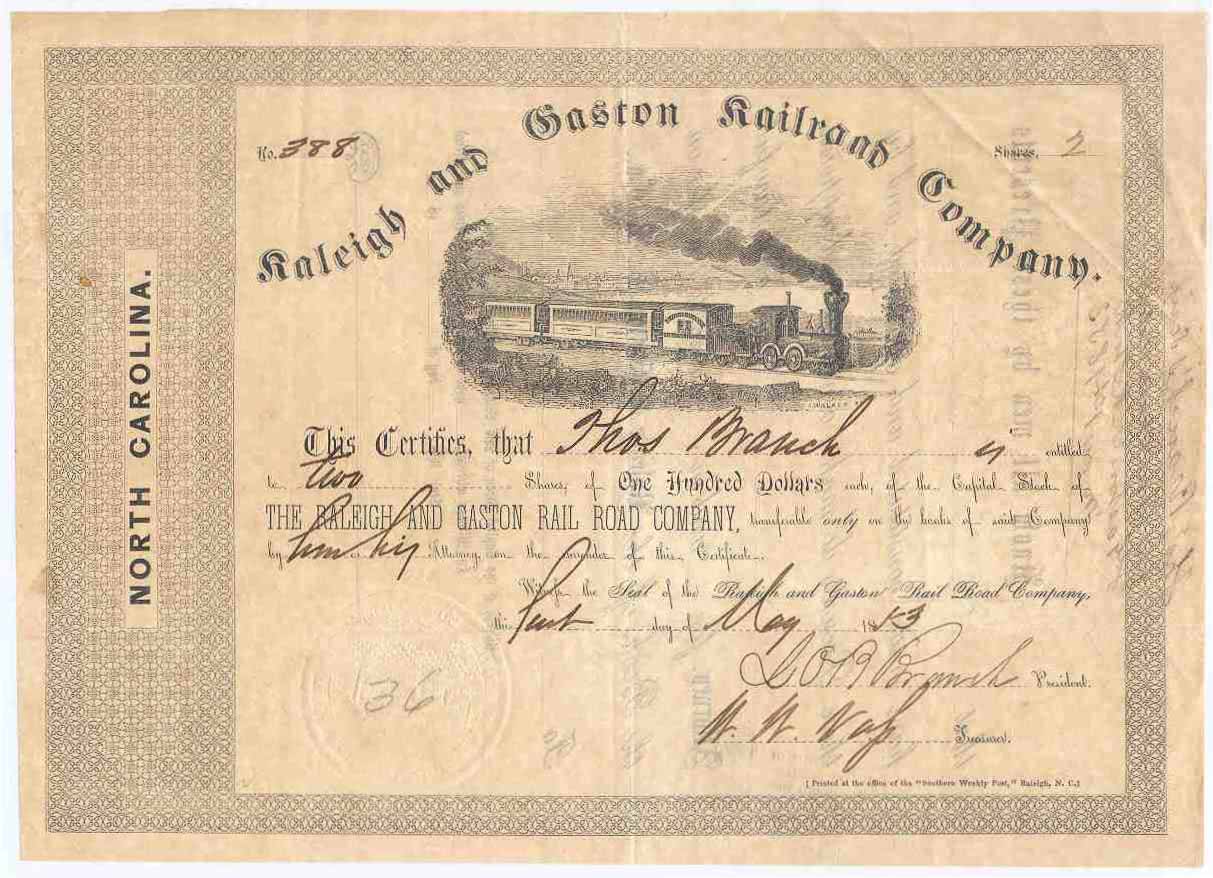 Raleigh and Gaston Railroad Company.
No. 388
Shares, 2
NORTH CAROLINA.
WALKER
This Certifies, that Thos Branch is entitled
to two Shares, of One Hundred Dollars each, of the Capital Stock of
THE RALEIGH AND GASTON RAIL ROAD COMPANY, transferable only on the books of said Company
by him or his Attorney, on the surrender of this Certificate.
Witness the Seal of the Raleigh and Gaston Rail Road Company,
this first day of May 1853
L O B Branch President.
W. W. Vass Treasurer.
36
[Printed at the office of the "Southern Weekly Post," Raleigh, N. C.]